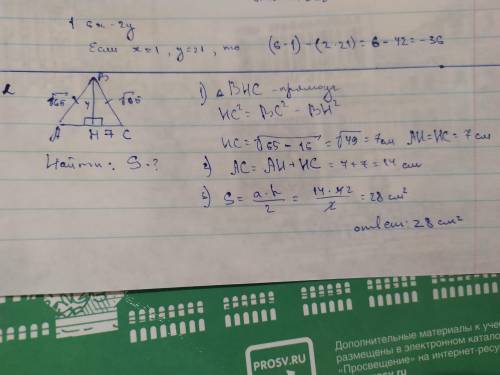 1 6x - 2y
Если x=1, y=21, то (6·1) - (2·21) = 6 - 42 = -36
2
B
√65 4 √65
A H 7 C
Найти: S-?
1) △BHC - прямоуг
HC² = BC² - BH²
HC = √65 - 16 = √49 = 7см AH = HC = 7 см
2) AC = AH + HC = 7 + 7 = 14 см
3) S = a·h/2 = 14·4²/2 = 28 см²
ответ: 28 см²
PROSV.RU
Дополнительные материалы к уче
размещены в электронном катало
«Просвещение» на интернет-ресу